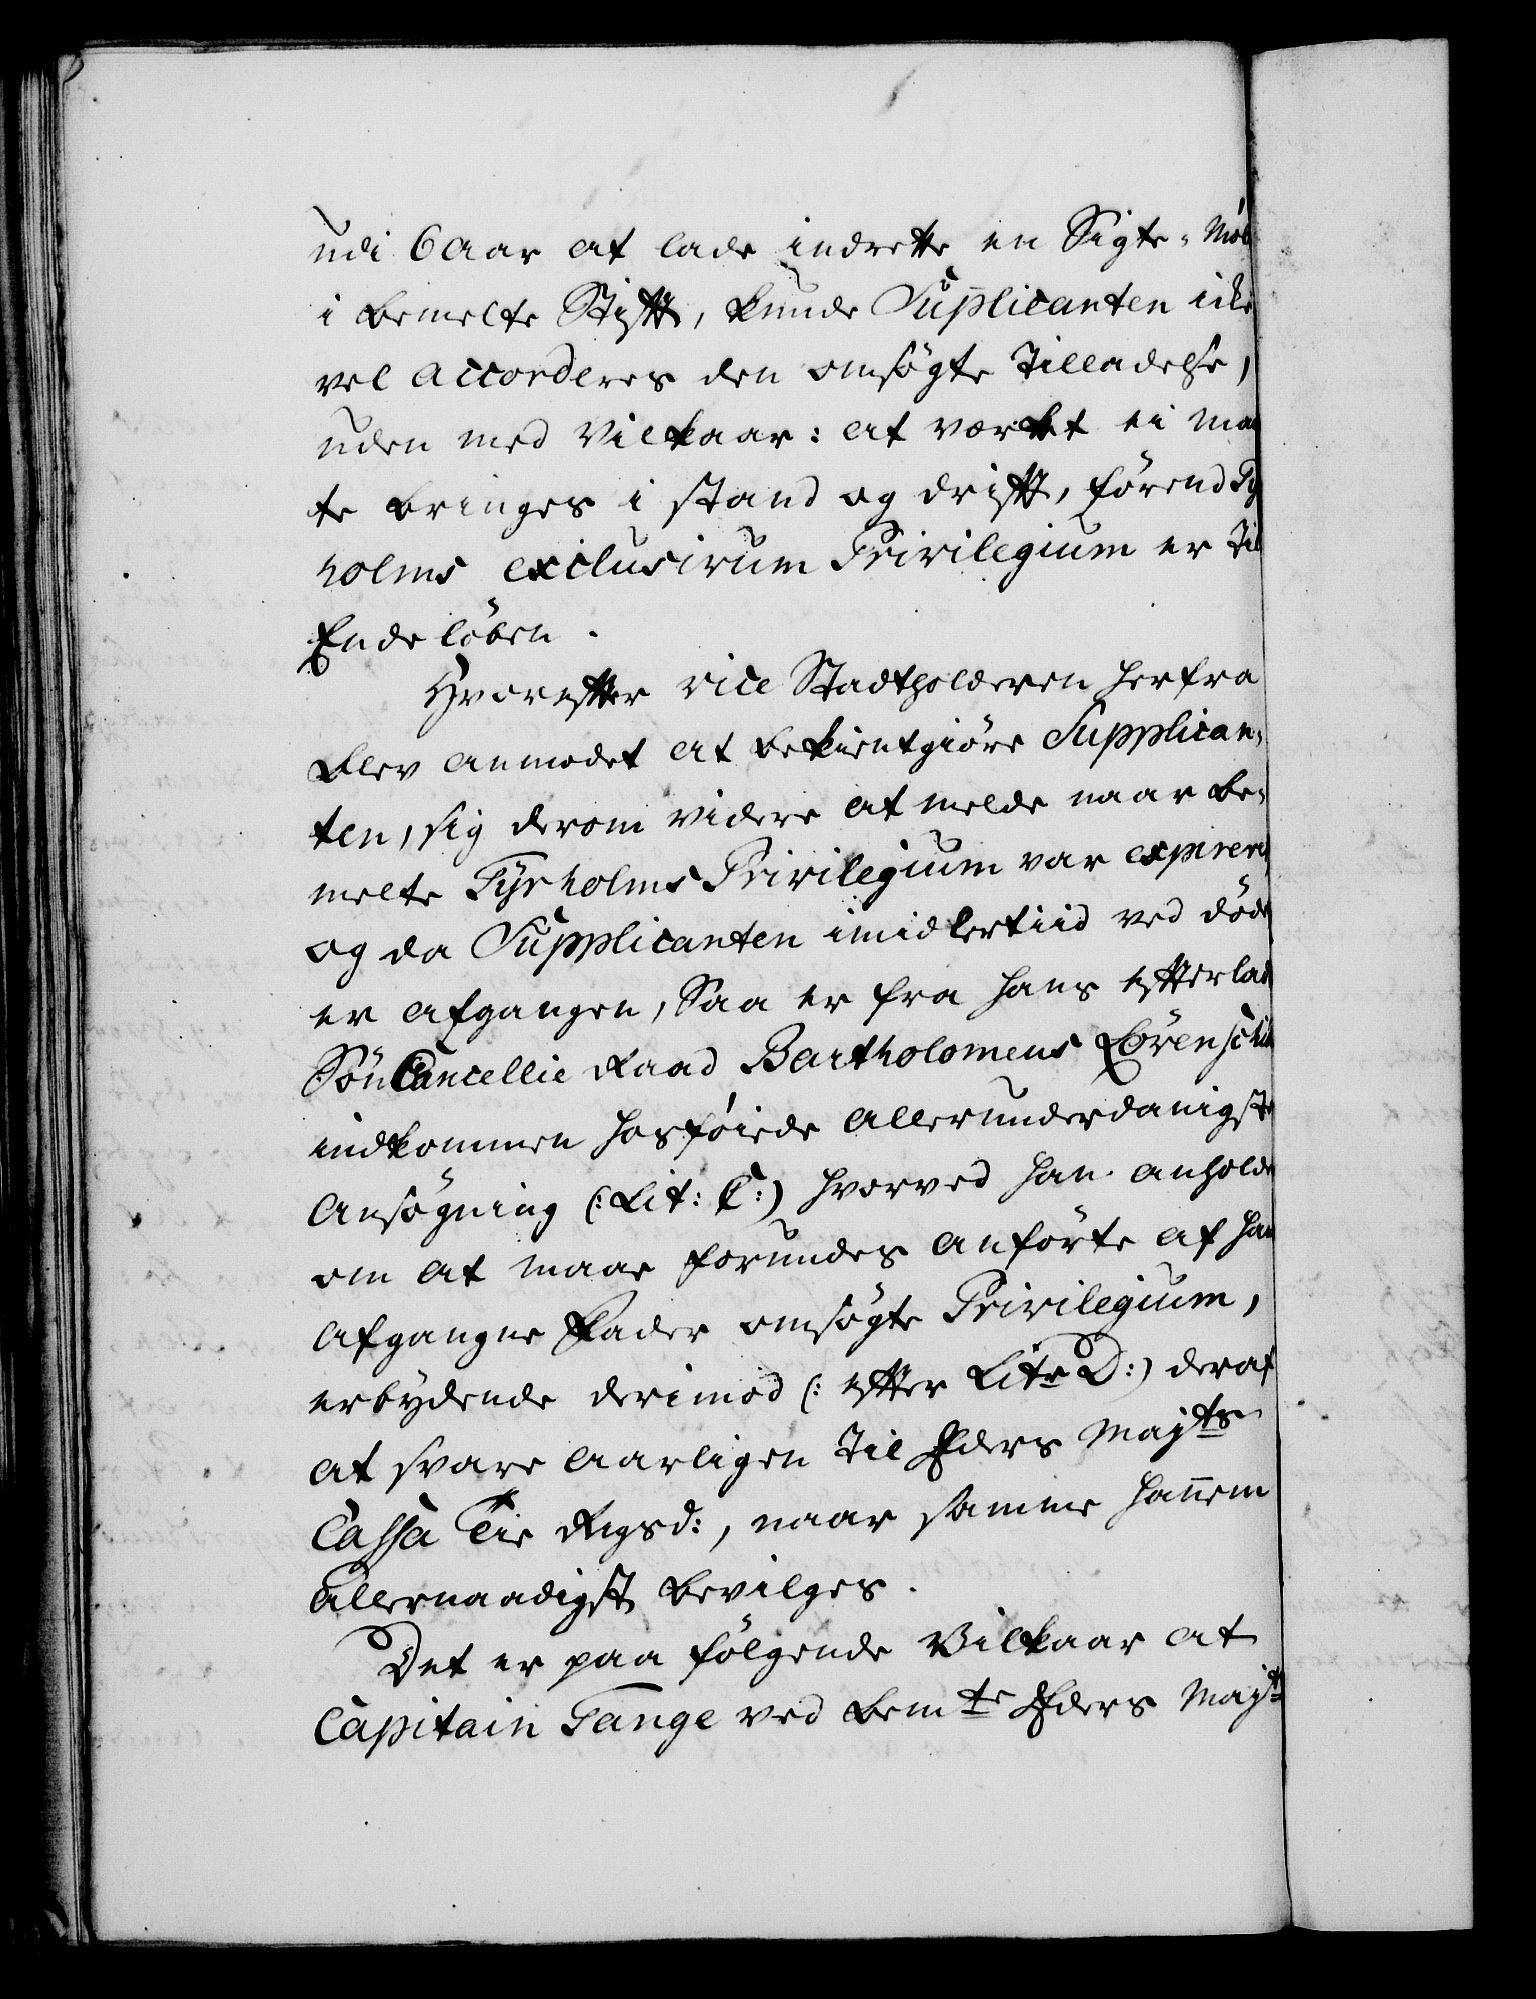 udi 6 aar at lade indrette en Sigte-Møl
i bemelte Stifft, kunde Supplicanten icke
vel accorderes den omsögte Tilladelse,
uden med Vilkaar: at værket ei maa
te bringes i stand og drifft, förend Ty
holms exclusivum Privilegium er til
Ende löben.
Hvorefter vice Stadtholderen herfra
blev anmodet at bekientgiöre Supplican-
ten, sig derom videre at melde naar be-
melte Tyrholms Privilegium var expirert,
og da Supplicanten imidlertiid ved döde
er afgangen, Saa er fra hans effterlad
Sön Cancellie Raad Bartholomeus
indkommen hosföiede allerunderdanigste
Ansögning (: Lit: C:) hvorved han anholde
om at maae forundes anförte af han
afgangne Fader omsögte Privilegium,
erbydende derimod (: effter Litr D:) deraf
at svare aarligen til Eders Mayts
Cassa Tie Rigsd:, naar samme hannem
allernaadigst bevilges.
Det er paa fölgende Vilkaar at
Capitain Tange ved bemte Eders Mayts